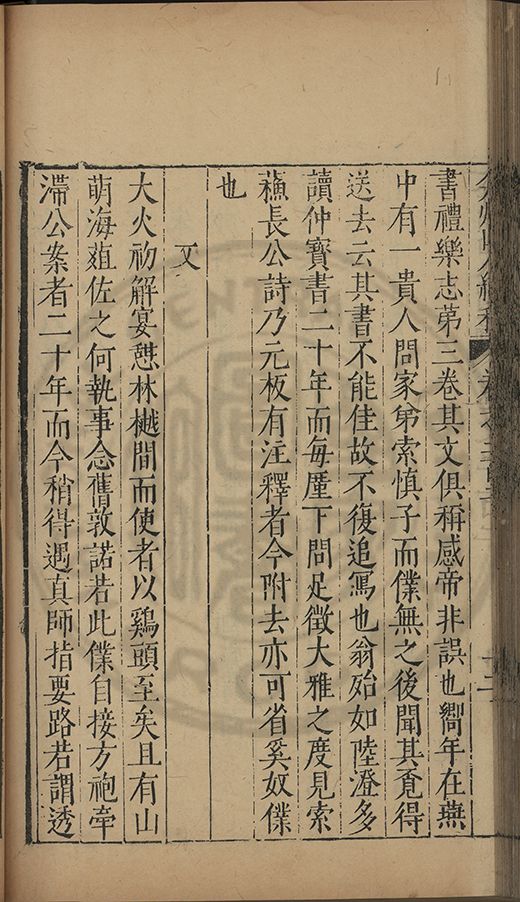 書禮樂志第三卷其文俱稱感帝非誤也嚮年在燕
中有一貴人問家弟索慎子而僕無之後聞其覔得
送去云其書不能佳故不復追寫也翁殆如陸澄多
讀仲寳書二十年而每厪下問足徵大雅之度見索
蘓長公詩乃元板有注釋者今附去亦可省奚奴僕
也
又
大火初解宴憇林樾間而使者以鷄頭至矣且有山
萌海葅佐之何執事念舊敦諾若此僕自接方袍牽
滯公案者二十年而今稍得遇真師指要路若謂透